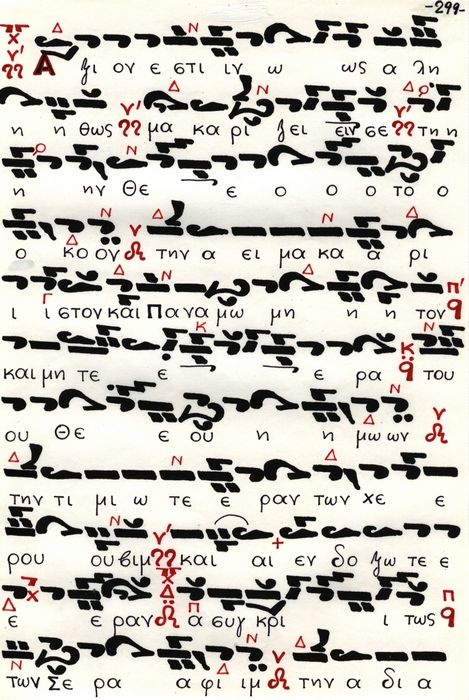 -299-
Α ξι ον ε στι ιν ω ως α λη
η η θως μα κα ρι ζει ειν σε τη η
η ην Θε ε ο ο ο το ο
ο κο ον την α ει μα κα α ρι
ι ι στον και Πα να μω μη η η τον
και μη τε ε ε ρα του
ου Θε ε ου η η μω ων
την τι μι ω τε ε ραν των χε ε
ρου ου βιμ και αι εν δο ξω τε ε
ε ε ραν α συγ κρι ι τως
των Σε ρα α φι ιμ την α δι α